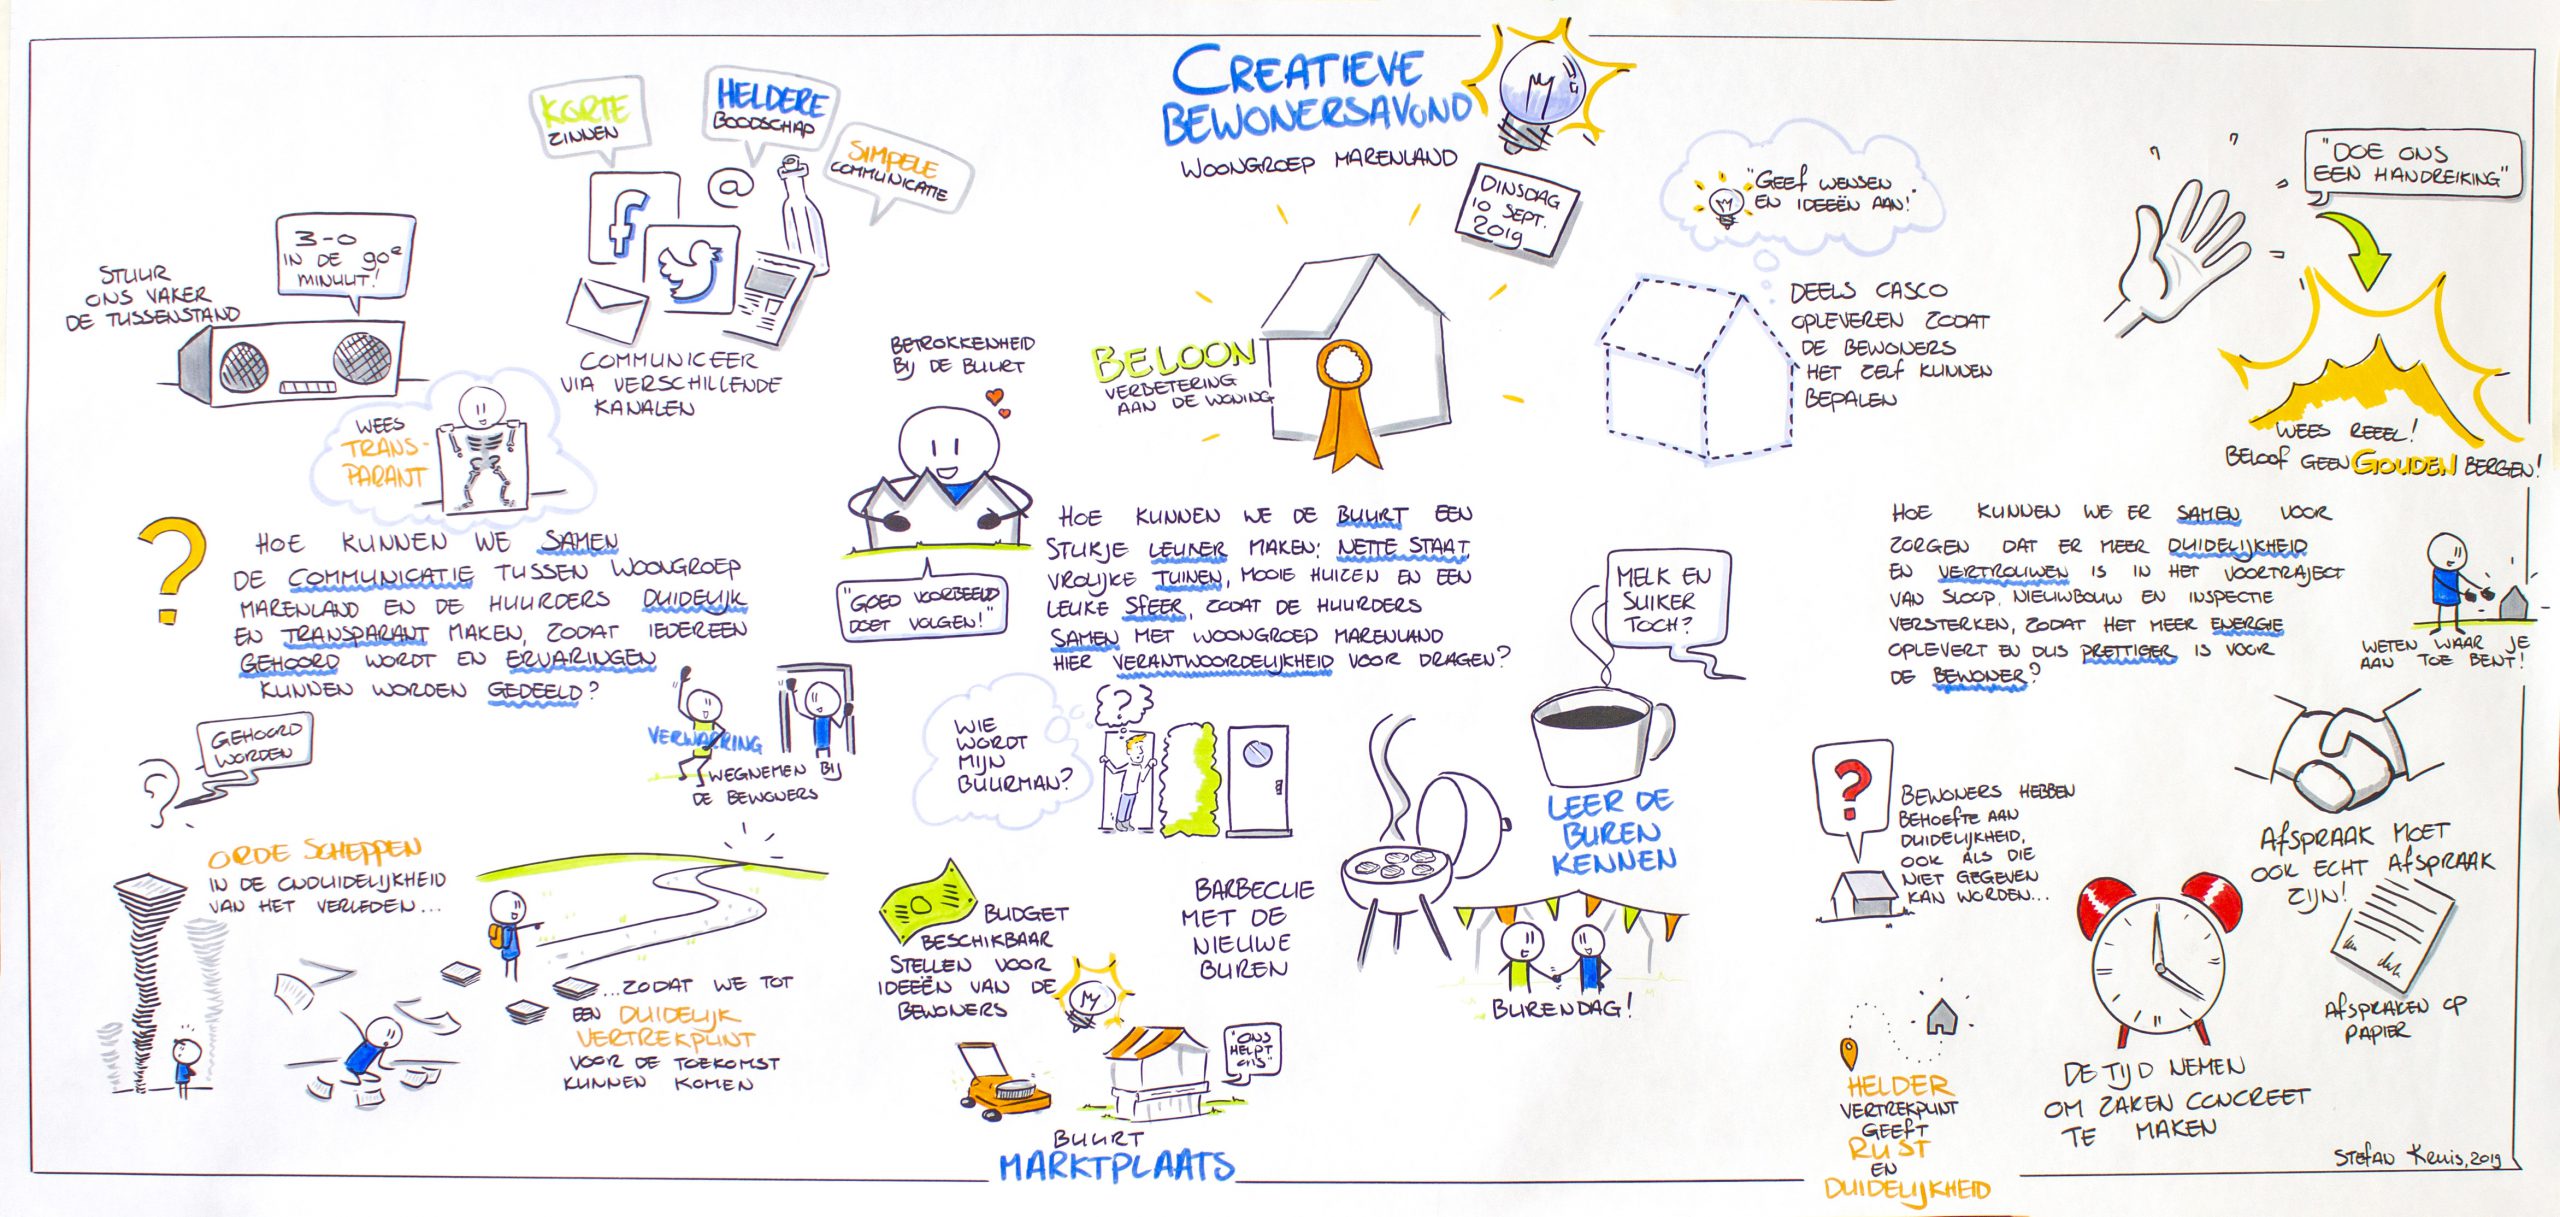 CREATIEVE
BEWONERSAVOND
WOONGROEP MARENLAND
DINSDAG
10 SEPT.
2019
KORTE
ZINNEN
HELDERE
BOODSCHAP
SIMPELE
COMMUNICATIE
@
f
COMMUNICEER
VIA VERSCHILLENDE
KANALEN
STUUR
ONS VAKER
DE TUSSENSTAND
3-0
IN DE 90e
MINUUT!
WEES
TRANS-
PARANT
?
HOE KUNNEN WE SAMEN
DE COMMUNICATIE TUSSEN WOONGROEP
MARENLAND EN DE HUURDERS DUIDELIJK
EN TRANSPARANT MAKEN, ZODAT IEDEREEN
GEHOORD WORDT EN ERVARINGEN
KUNNEN WORDEN GEDEELD?
GEHOORD
WORDEN
VERWARRING
WEGNEMEN BIJ
DE BEWONERS
ORDE SCHEPPEN
IN DE ONDUIDELIJKHEID
VAN HET VERLEDEN...
...ZODAT WE TOT
EEN DUIDELIJK
VERTREKPUNT
VOOR DE TOEKOMST
KUNNEN KOMEN
BETROKKENHEID
BIJ DE BUURT
"GOED VOORBEELD
DOET VOLGEN!"
BELOON
VERBETERING
AAN DE WONING
"GEEF WENSEN
EN IDEEËN AAN!
DEELS CASCO
OPLEVEREN ZODAT
DE BEWONERS
HET ZELF KUNNEN
BEPALEN
HOE KUNNEN WE DE BUURT EEN
STUKJE LEUKER MAKEN: NETTE STAAT,
VROLIJKE TUINEN, MOOIE HUIZEN EN EEN
LEUKE SFEER, ZODAT DE HUURDERS
SAMEN MET WOONGROEP MARENLAND
HIER VERANTWOORDELIJKHEID VOOR DRAGEN?
WIE
WORDT
MIJN
BUURMAN?
?
MELK EN
SUIKER
TOCH?
LEER DE
BUREN
KENNEN
BARBECUE
MET DE
NIEUWE
BUREN
BURENDAG!
BUDGET
BESCHIKBAAR
STELLEN VOOR
IDEEËN VAN DE
BEWONERS
"ONS
HELPT
ONS"
BUURT
MARKTPLAATS
"DOE ONS
EEN HANDREIKING"
WEES REEEL!
BELOOF GEEN GOUDEN BERGEN!
HOE KUNNEN WE ER SAMEN VOOR
ZORGEN DAT ER MEER DUIDELIJKHEID
EN VERTROUWEN IS IN HET VOORTRAJECT
VAN SLOOP, NIEUWBOUW EN INSPECTIE
VERSTERKEN, ZODAT HET MEER ENERGIE
OPLEVERT EN DUS PRETTIGER IS VOOR
DE BEWONER?
WETEN WAAR JE
AAN TOE BENT!
?
BEWONERS HEBBEN
BEHOEFTE AAN
DUIDELIJKHEID,
OOK ALS DIE
NIET GEGEVEN
KAN WORDEN...
AFSPRAAK MOET
OOK ECHT AFSPRAAK
ZIJN!
AFSPRAKEN OP
PAPIER
DE TIJD NEMEN
OM ZAKEN CONCREET
TE MAKEN
HELDER
VERTREKPUNT
GEEFT
RUST
EN
DUIDELIJKHEID
STEFAN KRUIS, 2019